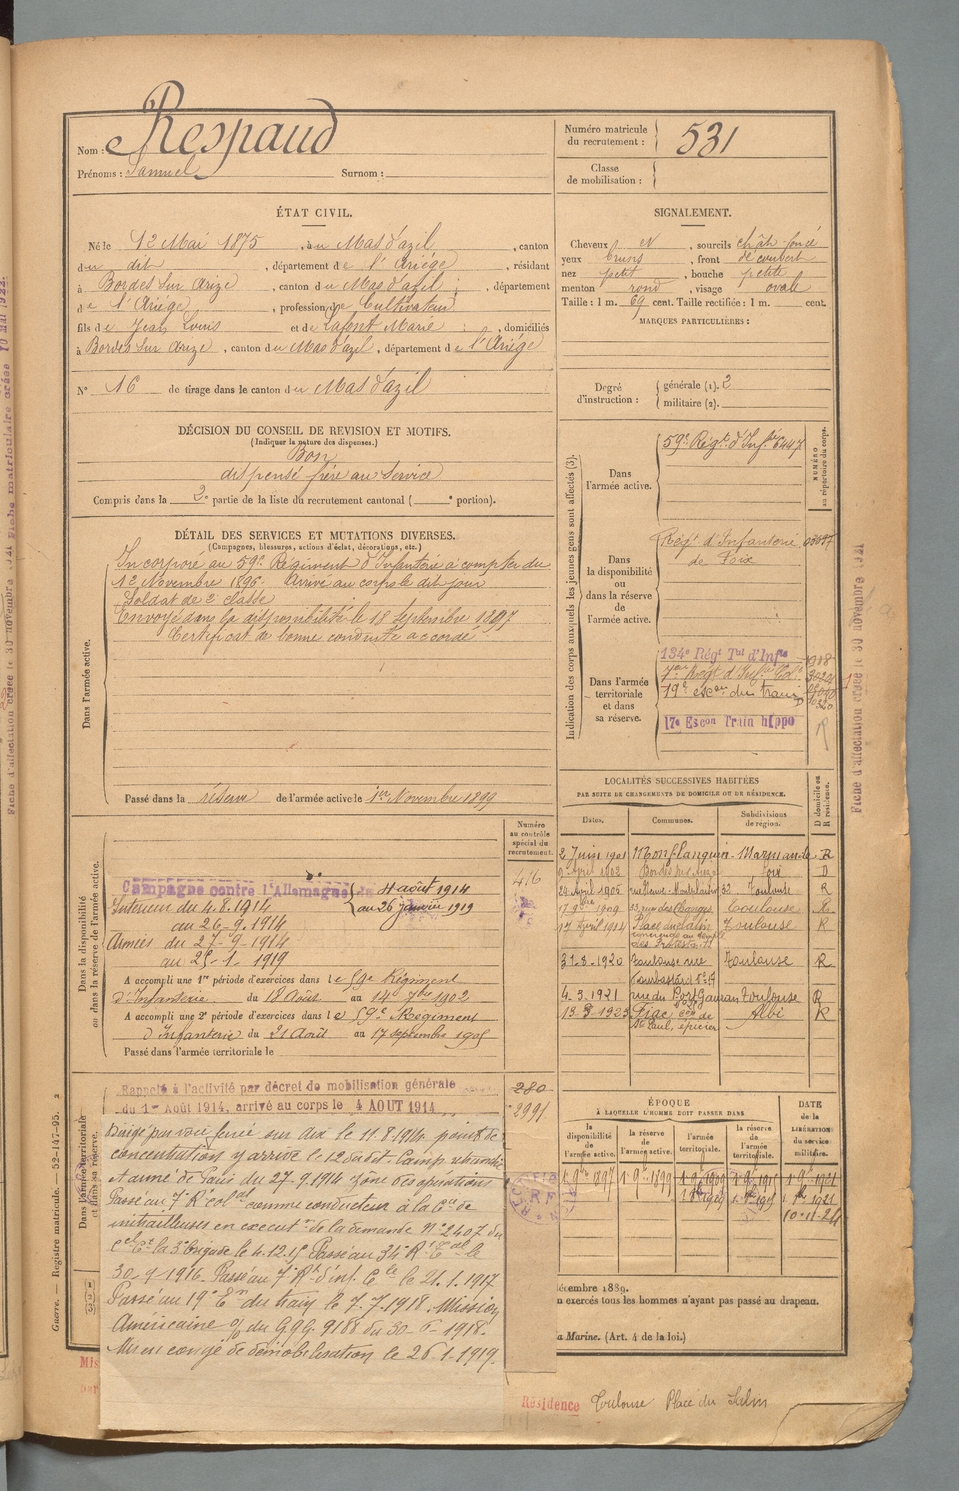 Nom : Respaud
Prénoms : Samuel Surnom :
Numéro matricule du recrutement : 531
Classe de mobilisation :
ÉTAT CIVIL.
Né le 12 Mai 1875, à u Mas d'azil, canton
du dit, département de l'Ariège, résidant
à Bordes sur Arize, canton du Mas d'azil, département
de l'Ariège, profession de Cultivateur
fils de Jean Louis et de Lafont Marie, domiciliés
à Bordes sur Arize, canton du Mas d'azil, département de l'Ariège
N° 16 de tirage dans le canton du Mas d'azil
SIGNALEMENT.
Cheveux et, sourcils chât foncé
yeux bruns, front découvert
nez petit, bouche petite
menton rond, visage ovale
Taille : 1 m. 69 cent. Taille rectifiée : 1 m. cent.
MARQUES PARTICULIÈRES :
Degré d'instruction : générale (1). 2
militaire (2).
DÉCISION DU CONSEIL DE REVISION ET MOTIFS.
(Indiquer la nature des dispenses.)
Bon
dispensé frère au service
Compris dans la 2e partie de la liste du recrutement cantonal ( e portion).
DÉTAIL DES SERVICES ET MUTATIONS DIVERSES.
(Campagnes, blessures, actions d'éclat, décorations, etc.)
Dans l'armée active.
Incorporé au 59e Régiment d'Infanterie à compter du
12 Novembre 1896. Arrivé au corps le dit jour
Soldat de 2e classe
Envoyé dans la disponibilité le 18 Septembre 1897
Certificat de bonne conduite accordé
Passé dans la réserve de l'armée active le 1er Novembre 1899
Indication des corps auxquels les jeunes gens sont affectés (3).
NUMÉRO au répertoire du corps.
Dans l'armée active.
59e Régt d'Infie 6447
Dans la disponibilité ou dans la réserve de l'armée active.
Régt d'Infanterie
de Foix
Dans l'armée territoriale et dans sa réserve.
134e Régt Tal d'Infie
7me Régt d'Infie Cole
19e escon du train
17e Escon Train hippo
R
LOCALITÉS SUCCESSIVES HABITÉES
PAR SUITE DE CHANGEMENTS DE DOMICILE OU DE RÉSIDENCE.
Dates. Communes. Subdivisions de région. D domicile ou R résidence.
2 Juin 1901 Monflanquin Marmande R
9 Avril 1902 Bordes sur Arize Foix D
24 Avril 1906 Toulouse R
17 9bre 1909 33, rue des Changes Toulouse R
17 Avril 1912 Place du Salin Toulouse R
31-8-1920 Toulouse rue Toulouse R
4-3-1921 rue du Port Garaud Toulouse R
13-3-1923 Fiac, con de St Paul, épicier Albi R
Dans la disponibilité ou dans la réserve de l'armée active.
Numéro au contrôle spécial du recrutement.
416
Campagne contre l'Allemagne du 4 août 1914
au 26 janvier 1919
Intérieur du 4.8.1914
au 26-9.1914
Armées du 27-9-1914
au 25-1-1919
A accompli une 1re période d'exercices dans le 59e Régiment
d'Infanterie du 18 Août au 14 7bre 1902
A accompli une 2e période d'exercices dans le 59e Régiment
d'Infanterie du 21 Août au 17 septembre 1905
Passé dans l'armée territoriale le
Dans l'armée territoriale et dans sa réserve.
280
2991
Rappelé à l'activité par décret de mobilisation générale
du 1er Août 1914, arrivé au corps le 4 AOUT 1914
Dirigé par voie ferrée sur Aix le 11.8.1914 point de
concentration y arrive le 12 dudit. Camp retranché
et armé de Paris du 27.9.1914 zône des opérations
Passé au 7e Rt colal comme conducteur à la Cie de
mitrailleuses en exécution de la demande N° 2407 du
Cel Ct la 3e brigade le 4.12.15 Passé au 34e Rt Tal le
30-9-1916. Passé au 7e Rt d'inf. Cle le 21.1.1917
Passé au 19e Eon du train le 7.7.1918. Mission
Américaine o/o du G.Q.G. 9188 du 30-6-1918.
Mis en congé de démobilisation le 26.1.1919.
ÉPOQUE
À LAQUELLE L'HOMME DOIT PASSER DANS
la disponibilité de l'armée active. la réserve de l'armée active. l'armée territoriale. la réserve de l'armée territoriale. DATE de la LIBÉRATION du service militaire.
1. 9bre 1897 1. 9bre 1899 1. 9bre 1909 1. 9bre 1915 1. 9bre 1921
10-11-24
RF
décembre 1889.
n exercés tous les hommes n'ayant pas passé au drapeau.
a Marine. (Art. 4 de la loi.)
Résidence Toulouse Place du Salin
Guerre. — Registre matricule. — 52-147-95. 2
Fiche d'affectation créée le 30 novembre 1921
Fiche matriculaire créée 10 MAI 1922
Mis
par